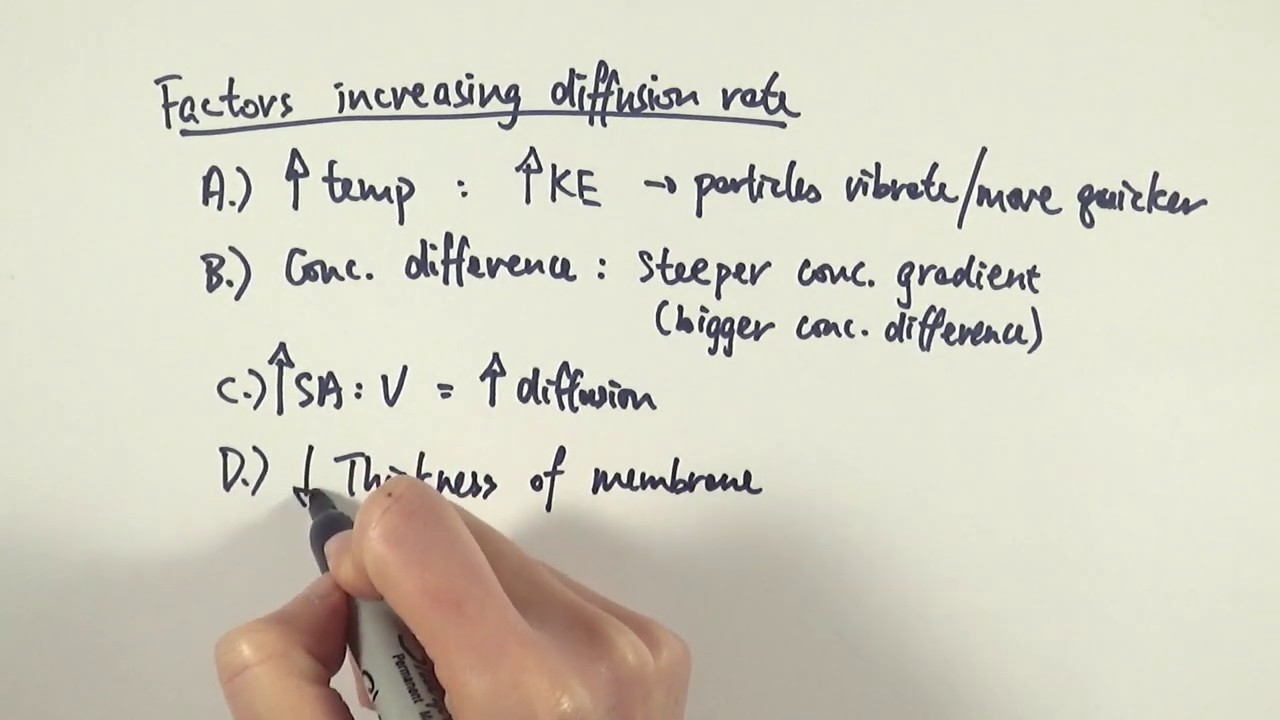 Factors increasing diffusion rate
A.) ↑ temp : ↑ KE → particles vibrate/move quicker
B.) Conc. difference : Steeper conc. gradient
(bigger conc. difference)
C.) ↑ SA : V = ↑ diffusion
D.) ↓ Thickness of membrane
Permanent